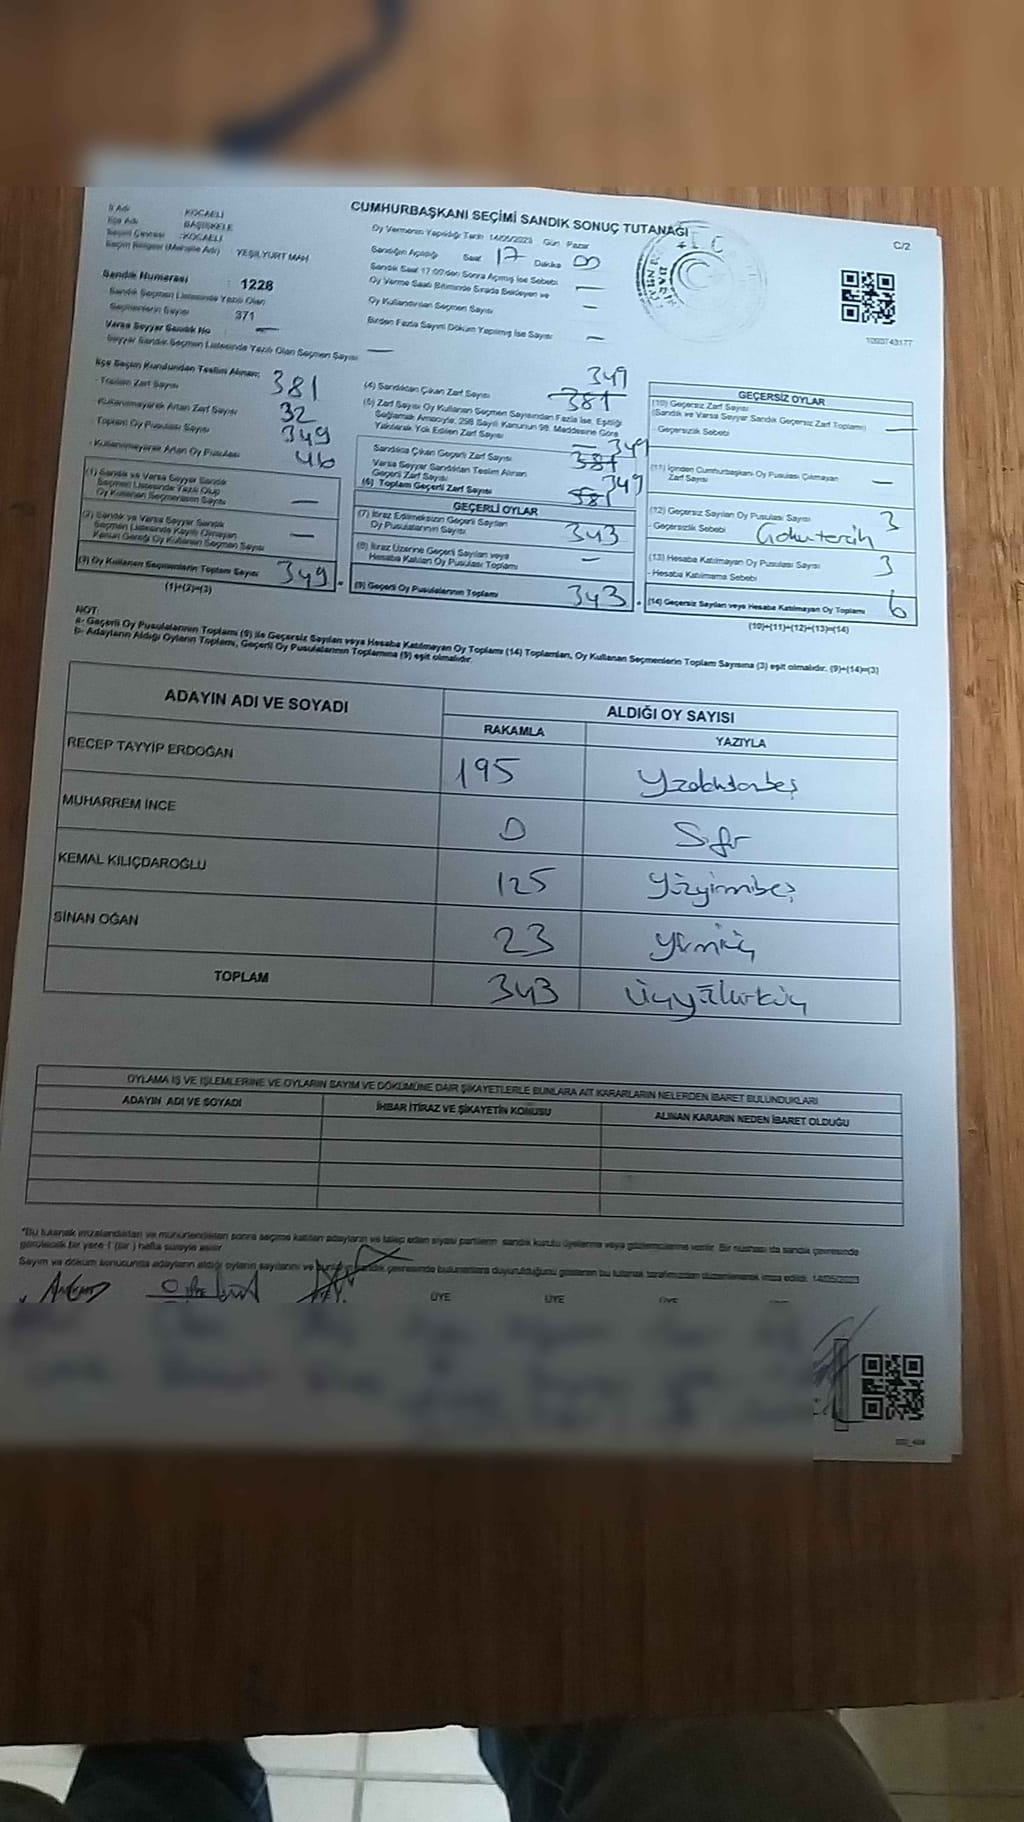 CUMHURBAŞKANI SEÇİMİ SANDIK SONUÇ TUTANAĞI
C/2
İl Adı KOCAELİ
İlçe Adı BAŞİSKELE
Seçim Çevresi :KOCAELİ
Seçim Bölgesi (Mahalle Adı) YEŞİLYURT MAH
Sandık Numarası : 1228
Sandık Seçmen Listesinde Yazılı Olan
Seçmenlerin Sayısı 371
Varsa Seyyar Sandık No —
Seyyar Sandık Seçmen Listesinde Yazılı Olan Seçmen Sayısı —
Oy Vermenin Yapıldığı Tarih 14/05/2023 Gün Pazar
Sandığın Açıldığı Saat 17 Dakika 00
Sandık Saat 17:00'den Sonra Açılmış İse Sebebi —
Oy Verme Saati Bitiminde Sırada Bekleyen ve
Oy Kullandırılan Seçmen Sayısı —
Birden Fazla Sayım Döküm Yapılmış İse Sayısı —
1093743177
İlçe Seçim Kurulundan Teslim Alınan;
- Toplam Zarf Sayısı 381
- Kullanılmayarak Artan Zarf Sayısı 32
Toplam Oy Pusulası Sayısı 349
- Kullanılmayarak Artan Oy Pusulası 46
(1) Sandık ve Varsa Seyyar Sandık
Seçmen Listesinde Yazılı Olup
Oy Kullanan Seçmenlerin Sayısı —
(2) Sandık ve Varsa Seyyar Sandık
Seçmen Listesinde Kayıtlı Olmayan
Kanun Gereği Oy Kullanan Seçmen Sayısı —
(3) Oy Kullanan Seçmenlerin Toplam Sayısı 349
(1)+(2)=(3)
349
(4) Sandıktan Çıkan Zarf Sayısı 381
(5) Zarf Sayısı Oy Kullanan Seçmen Sayısından Fazla İse, Eşitliği
Sağlamak Amacıyla; 298 Sayılı Kanunun 98. Maddesine Göre
Yakılarak Yok Edilen Zarf Sayısı —
349
Sandıkta Çıkan Geçerli Zarf Sayısı 381
Varsa Seyyar Sandıktan Teslim Alınan
Geçerli Zarf Sayısı 349
(6) Toplam Geçerli Zarf Sayısı 381
GEÇERLİ OYLAR
(7) İtiraz Edilmeksizin Geçerli Sayılan
Oy Pusulalarının Sayısı 343
(8) İtiraz Üzerine Geçerli Sayılan veya
Hesaba Katılan Oy Pusulası Toplamı —
(9) Geçerli Oy Pusulalarının Toplamı 343
GEÇERSİZ OYLAR
(10) Geçersiz Zarf Sayısı
(Sandık ve Varsa Seyyar Sandık Geçersiz Zarf Toplamı) —
- Geçersizlik Sebebi
(11) İçinden Cumhurbaşkanı Oy Pusulası Çıkmayan
Zarf Sayısı —
(12) Geçersiz Sayılan Oy Pusulası Sayısı 3
- Geçersizlik Sebebi Çoklu tercih
(13) Hesaba Katılmayan Oy Pusulası Sayısı 3
- Hesaba Katılmama Sebebi
(14) Geçersiz Sayılan veya Hesaba Katılmayan Oy Toplamı 6
(10)+(11)+(12)+(13)=(14)
NOT:
a- Geçerli Oy Pusulalarının Toplamı (9) ile Geçersiz Sayılan veya Hesaba Katılmayan Oy Toplamı (14) Toplamları, Oy Kullanan Seçmenlerin Toplam Sayısına (3) eşit olmalıdır. (9)+(14)=(3)
b- Adayların Aldığı Oyların Toplamı, Geçerli Oy Pusulalarının Toplamına (9) eşit olmalıdır.
ADAYIN ADI VE SOYADI
ALDIĞI OY SAYISI
RAKAMLA YAZIYLA
RECEP TAYYİP ERDOĞAN 195 Yzdoksanbeş
MUHARREM İNCE 0 Sıfır
KEMAL KILIÇDAROĞLU 125 Yüzyirmibeş
SİNAN OĞAN 23 Yirmiüç
TOPLAM 343 Üçyüzkırküç
OYLAMA İŞ VE İŞLEMLERİNE VE OYLARIN SAYIM VE DÖKÜMÜNE DAİR ŞİKAYETLERLE BUNLARA AİT KARARLARIN NELERDEN İBARET BULUNDUKLARI
ADAYIN ADI VE SOYADI İHBAR İTİRAZ VE ŞİKAYETİN KONUSU ALINAN KARARIN NEDEN İBARET OLDUĞU
*Bu tutanak imzalandıktan ve mühürlendikten sonra seçime katılan adayların ve talep eden siyasi partilerin sandık kurulu üyelerine veya gözlemcilerine verilir. Bir nüshası da sandık çevresinde
görülecek bir yere 1 (bir) hafta süreyle asılır
Sayım ve döküm sonucunda adayların aldığı oyların sayılarını ve bunun sandık çevresinde bulunanlara duyurulduğunu gösteren bu tutanak tarafımızdan düzenlenerek imza edildi. 14/05/2023
ÜYE ÜYE ÜYE